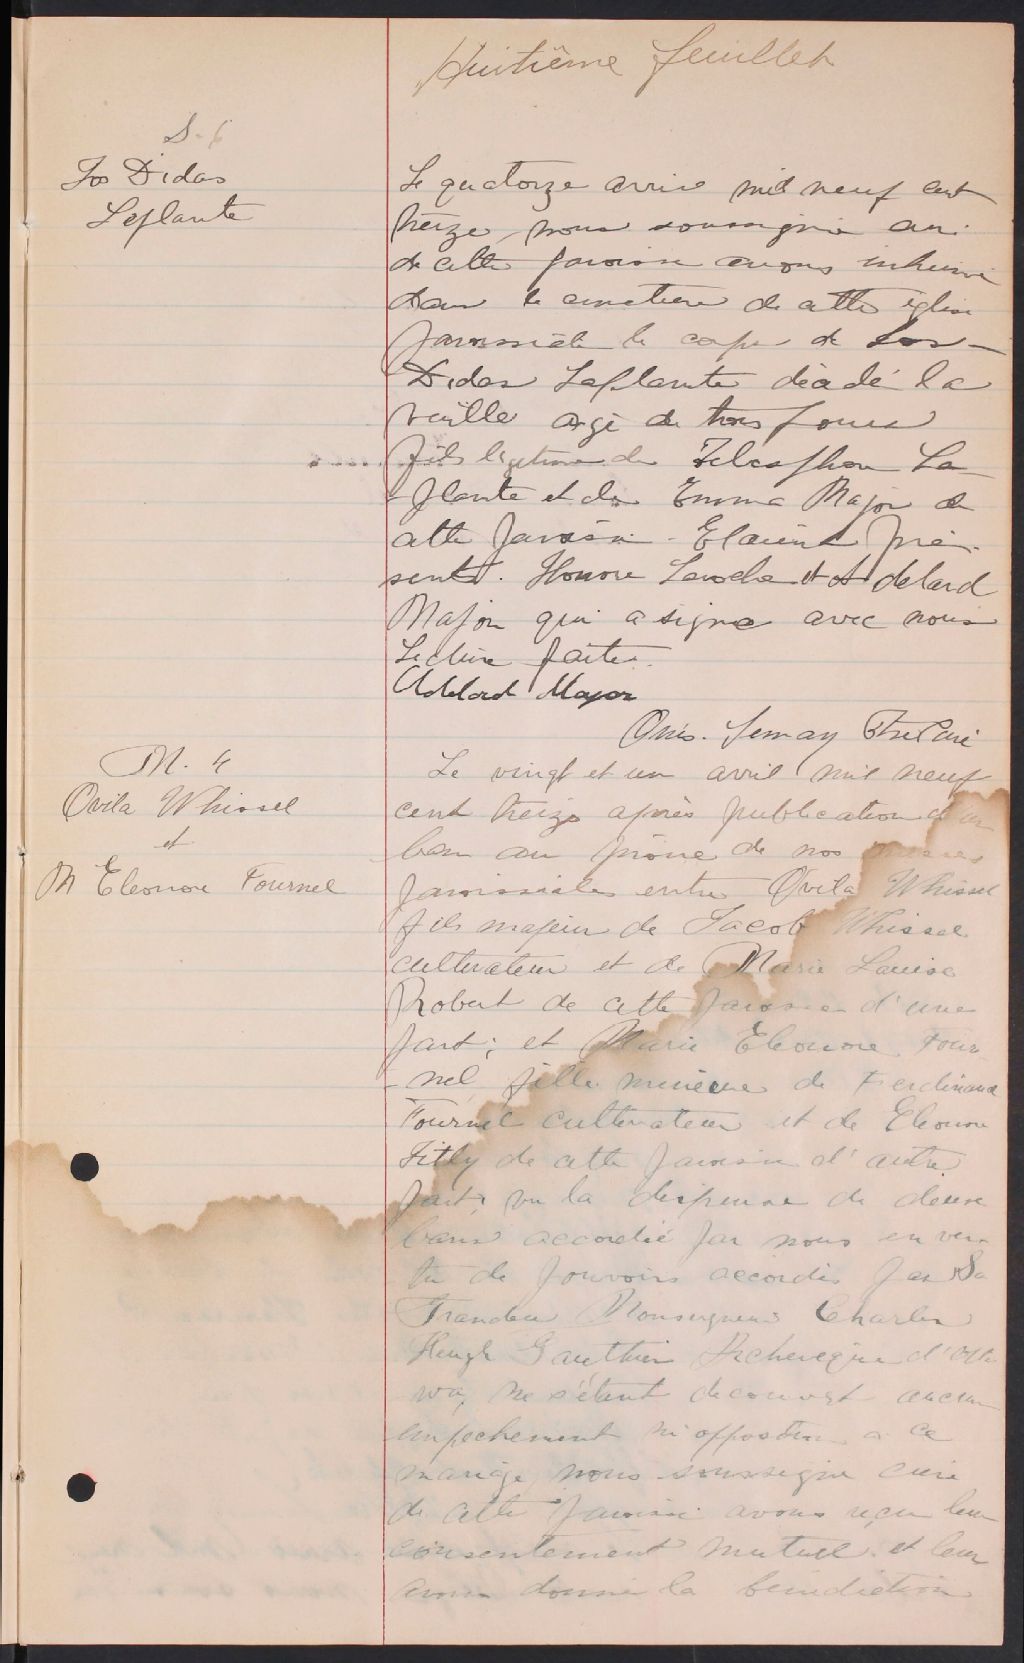 Huitième feuillet
S-6
Jos Didas
Laplante
Le quatorze avril mil neuf cent
treize, nous soussigné curé
de cette paroisse avons inhumé
dans le cimetière de cette église
paroissiale le corps de Jos-
Didas Laplante décédé la
veille agé de trois jours
fils légitime de Telesphore La
-plante et de Emma Major de
cette paroisse. Etaient pré-
sents. Honoré Laroche et Adelard
Major qui a signé avec nous
Lecture faite.
Adelard Major
Onés. Lemay Ptre Curé
M. 4
Ovila Whissel
et
M Eleonore Fournel
Le vingt et un avril mil neuf
cent treize après publication d'un
ban au prône de nos messes
paroissiales entre Ovila Whissel
fils majeur de Jacob Whissel
cultivateur et de Marie Louise
Robert de cette paroisse d'une
part; et Marie Eleonore Four-
-nel, fille mineure de Ferdinand
Fournel cultivateur et de Eleonore
Filly de cette paroisse d'autre
part, vu la dispense de deux
bans accordée par nous en ver-
tu de pouvoirs accordés par Sa
Grandeur Monseigneur Charles
Hugh Gauthier Archevêque d'Otta
wa, ne s'étant découvert aucun
empechement ni opposition a ce
mariage, nous soussigné curé
de cette paroisse avons reçu leur
consentement mutuel et leur
avons donné la bénédiction